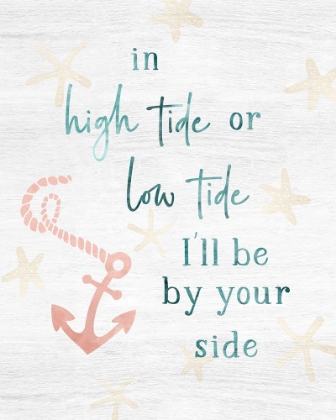 in
high tide or
low tide
I'll be
by your
side